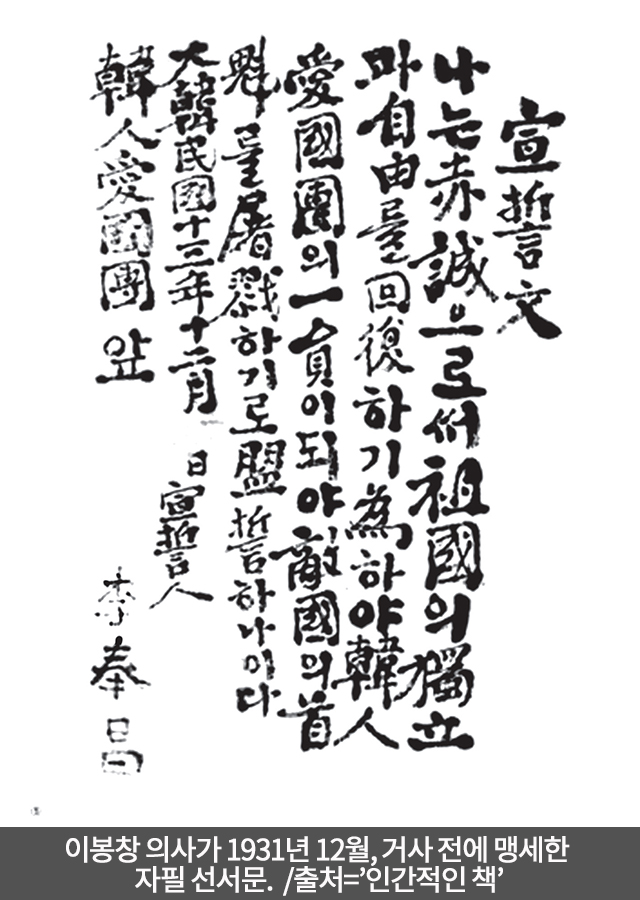 宣誓文
나는赤誠으로써祖國의獨立
과自由를回復하기爲하야韓人
愛國團의一員이되야敵國의首
魁를屠戮하기로盟誓하나이다
大韓民國十三年十二月 日
宣誓人 李奉昌
韓人愛國團 앞
이봉창 의사가 1931년 12월, 거사 전에 맹세한
자필 선서문. /출처=’인간적인 책’